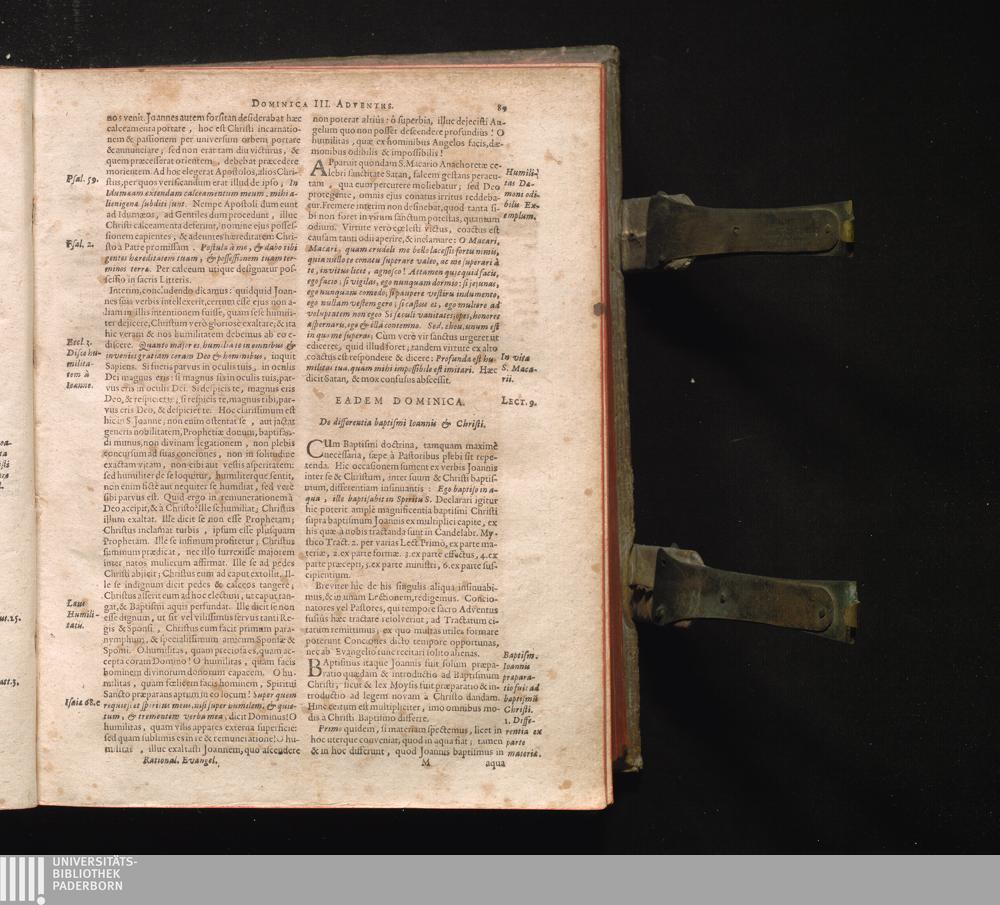 DOMINICA III. ADVENTUS.
89
nos venit. Joannes autem forsitan desiderabat hæc
calceamenta portare , hoc est Christi incarnatio-
nem & passionem per universum orbem portare
& annunciare ; sed non erat tam diu victurus , &
quem præcesserat orientem , debebat præcedere
morientem. Ad hoc elegerat Apostolos, alios Chri-
stus, per quos verificandum erat illud de ipso ; In
Psal. 59.
Idumæam extendam calceamentum meum . mihi a-
lienigenæ subditi sunt. Nempe Apostoli dum eunt
ad Idumæos, ad Gentiles dum procedunt , illuc
Christi calceamenta deferunt, nomine ejus posses-
sionem capientes , & adeuntes hæreditatem Chri-
sto à Patre promissam . Postula à me, & dabo tibi
Psal. 2.
gentes hæreditatem tuam , & possessionem tuam ter-
minos terræ. Per calceum utique designatur pos-
sessio in sacris Litteris.
Interim, concludendo dicamus : quidquid Joan-
nes suis verbis intellexerit, certum esse ejus non a-
liam in illis intentionem fuisse, quam sese humili-
ter dejicere, Christum verò gloriose exaltare; & ita
hic veram & nos humilitatem debemus ab eo e-
discere. Quanto major es, humilia te in omnibus &
Eccl. 3.
Disce hu-
milita-
tem à
Ioanne.
invenies gratiam coram Deo & hominibus, inquit
Sapiens. Si fueris parvus in oculis tuis, in oculis
Dei magnus eris: si magnus sis in oculis tuis, par-
vus eris in oculis Dei. Si despicis te, magnus eris
Deo, & respiciet te ; si respicis te, magnus tibi, par-
vus eris Deo, & despiciet te. Hoc clarissimum est
hic in S. Joanne; non enim ostentat se , aut jactat
generis nobilitatem, Prophetiæ donum, baptisan-
di munus, non divinam legationem , non plebis
concursum ad suas conciones, non in solitudine
exactam vitam , non cibi aut vestis asperitatem:
sed humiliter de se loquitur, humiliterque sentit,
nen enim fictè aut nequiter se humiliat, sed verè
sibi parvus est. Quid ergo in remunerationem à
Deo accipit, & à Christo? Ille se humiliat; Christus
illum exaltat. Ille dicit se non esse Prophetam;
Christus inclamat turbis , ipsum esse plusquam
Prophetam. Ille se infimum profitetur; Christus
summum prædicat, nec illo surrexisse majorem
inter natos mulierum affirmat. Ille se ad pedes
Christi abjicit; Christus eum ad caput extollit. Il-
le se indignum dicit pedes & calceos tangere,
Christus asserit eum ad hoc electum, ut caput tan-
Laus
Humili-
tatis.
gat, & Baptismi aquis perfundat. Ille dicit se non
esse dignum, ut sit vel vilissimus servus tanti Re-
gis & Sponsi , Christus eum facit primum para-
nymphum, & specialissimum amicum Sponsæ &
Sponsi. O humilitas , quam preciosa es, quam ac-
cepta coram Domino ! O humilitas , quam facis
hominem divinorum donorum capacem. O hu-
militas , quam fœlicem facis hominem , Spiritui
Sancto præparans aptum in eo locum ! Super quem
Isaiæ 68. c
requiescet spiritus meus, nisi super humilem, & quie-
tum , & trementem verba mea, dicit Dominus! O
humilitas , quam vilis appares externa superficie:
sed quam sublimis es in re & remuneratione! O hu-
militas , illuc exaltasti Joannem, quo ascendere
Rational. Evangel.
non poterat altius: ô superbia, illuc dejecisti An-
gelum quo non posset descendere profundius ! O
humilitas , quæ ex hominibus Angelos facis, dæ-
monibus odibilis & impossibilis !
APparuit quondam S. Macario Anachoretæ ce-
lebri sanctitate Satan, falcem gestans peracu-
tam , qua eum percutere moliebatur; sed Deo
protegente, omnis ejus conatus irritus reddeba-
tur. Fremere interim non desinebat, quod tanta si-
bi non foret in virum sanctum potestas, quantum
odium. Virtute verò cœlesti victus, coactus est
causam tanti odii aperire, & inclamare: O Macari,
Humili-
tas Dæ-
moni odi-
bilis Ex-
emplum.
Macari , quam crudeli me bello lacessis fortu nimis,
quia nullo te conatu superare valeo, ac me superari à
te, invitus licet , agnosco ! Attamen quicquid facis,
ego facio ; si vigilas, ego nunquam dormio: si jejunas,
ego nunquam comedo; si paupere vestiris indumento,
ego nullam vestem gero ; si castus es , ego muliere ad
voluptatem non egeo. Si sæculi vanitates, opes, honores
aspernaris, ego & illa contemno. Sed, eheu, unum est
in quo me superas; Cum verò vir sanctus urgeret ut
ediceret, quid illud foret; tandem virtute ex alto
coactus est respondere & dicere : Profunda est hu-
militas tua, quam mihi impossibile est imitari. Hæc
dicit Satan, & mox confusus abscessit.
In vita
S. Maca-
rii.
EADEM DOMINICA.
LECT. 9.
De differentia baptismi Ioannis & Christi.
CUm Baptismi doctrina, tamquam maximè
necessaria, sæpe à Pastoribus plebi sit repe-
tenda. Hic occasionem sument ex verbis Joannis
inter se & Christum, inter suum & Christi baptis-
mum, differentiam insinuantis : Ego baptiso in a-
qua , ille baptisabit in Spiritu S. Declarari igitur
hic poterit amplè magnificentia baptismi Christi
supra baptismum Joannis ex multiplici capite, ex
his quæ à nobis tractanda sunt in Candelabr. My-
stico Tract. 2. per varias Lect Primò, ex parte ma-
teriæ, 2. ex parte formæ. 3. ex parte effectus, 4. ex
parte præcepti, 5. ex parte ministri, 6. ex parte sus-
cipientium.
Breviter hic de his singulis aliqua insinuabi-
mus, & in unam Lectionem redigemus. Concio-
natores vel Pastores, qui tempore sacro Adventus
fusiùs hæc tractare resolverint, ad Tractatum ci-
tatum remittimus ; ex quo multas utiles formare
poterunt Conciones dicto tempore opportunas,
nec ab Evangelio tunc recitari solito alienas.
BAptismus itaque Joannis fuit solum præpa-
ratio quædam & introductio ad Baptismum
Christi, sicut & lex Moysis fuit præparatio & in-
troductio ad legem novam à Christo dandam.
Hinc certum est multipliciter, imo omnibus mo-
dis à Christi Baptismo differre.
Baptism.
Ioannis
præpara-
tio fuit ad
baptismũ
Christi.
1. Diffe-
rentia ex
parte
materiæ.
Primo quidem, si materiam spectemus, licet in
hoc uterque conveniat, quod in aqua fiat ; tamen
& in hoc differunt , quod Joannis baptismus in
M
aqua
UNIVERSITÄTS-
BIBLIOTHEK
PADERBORN